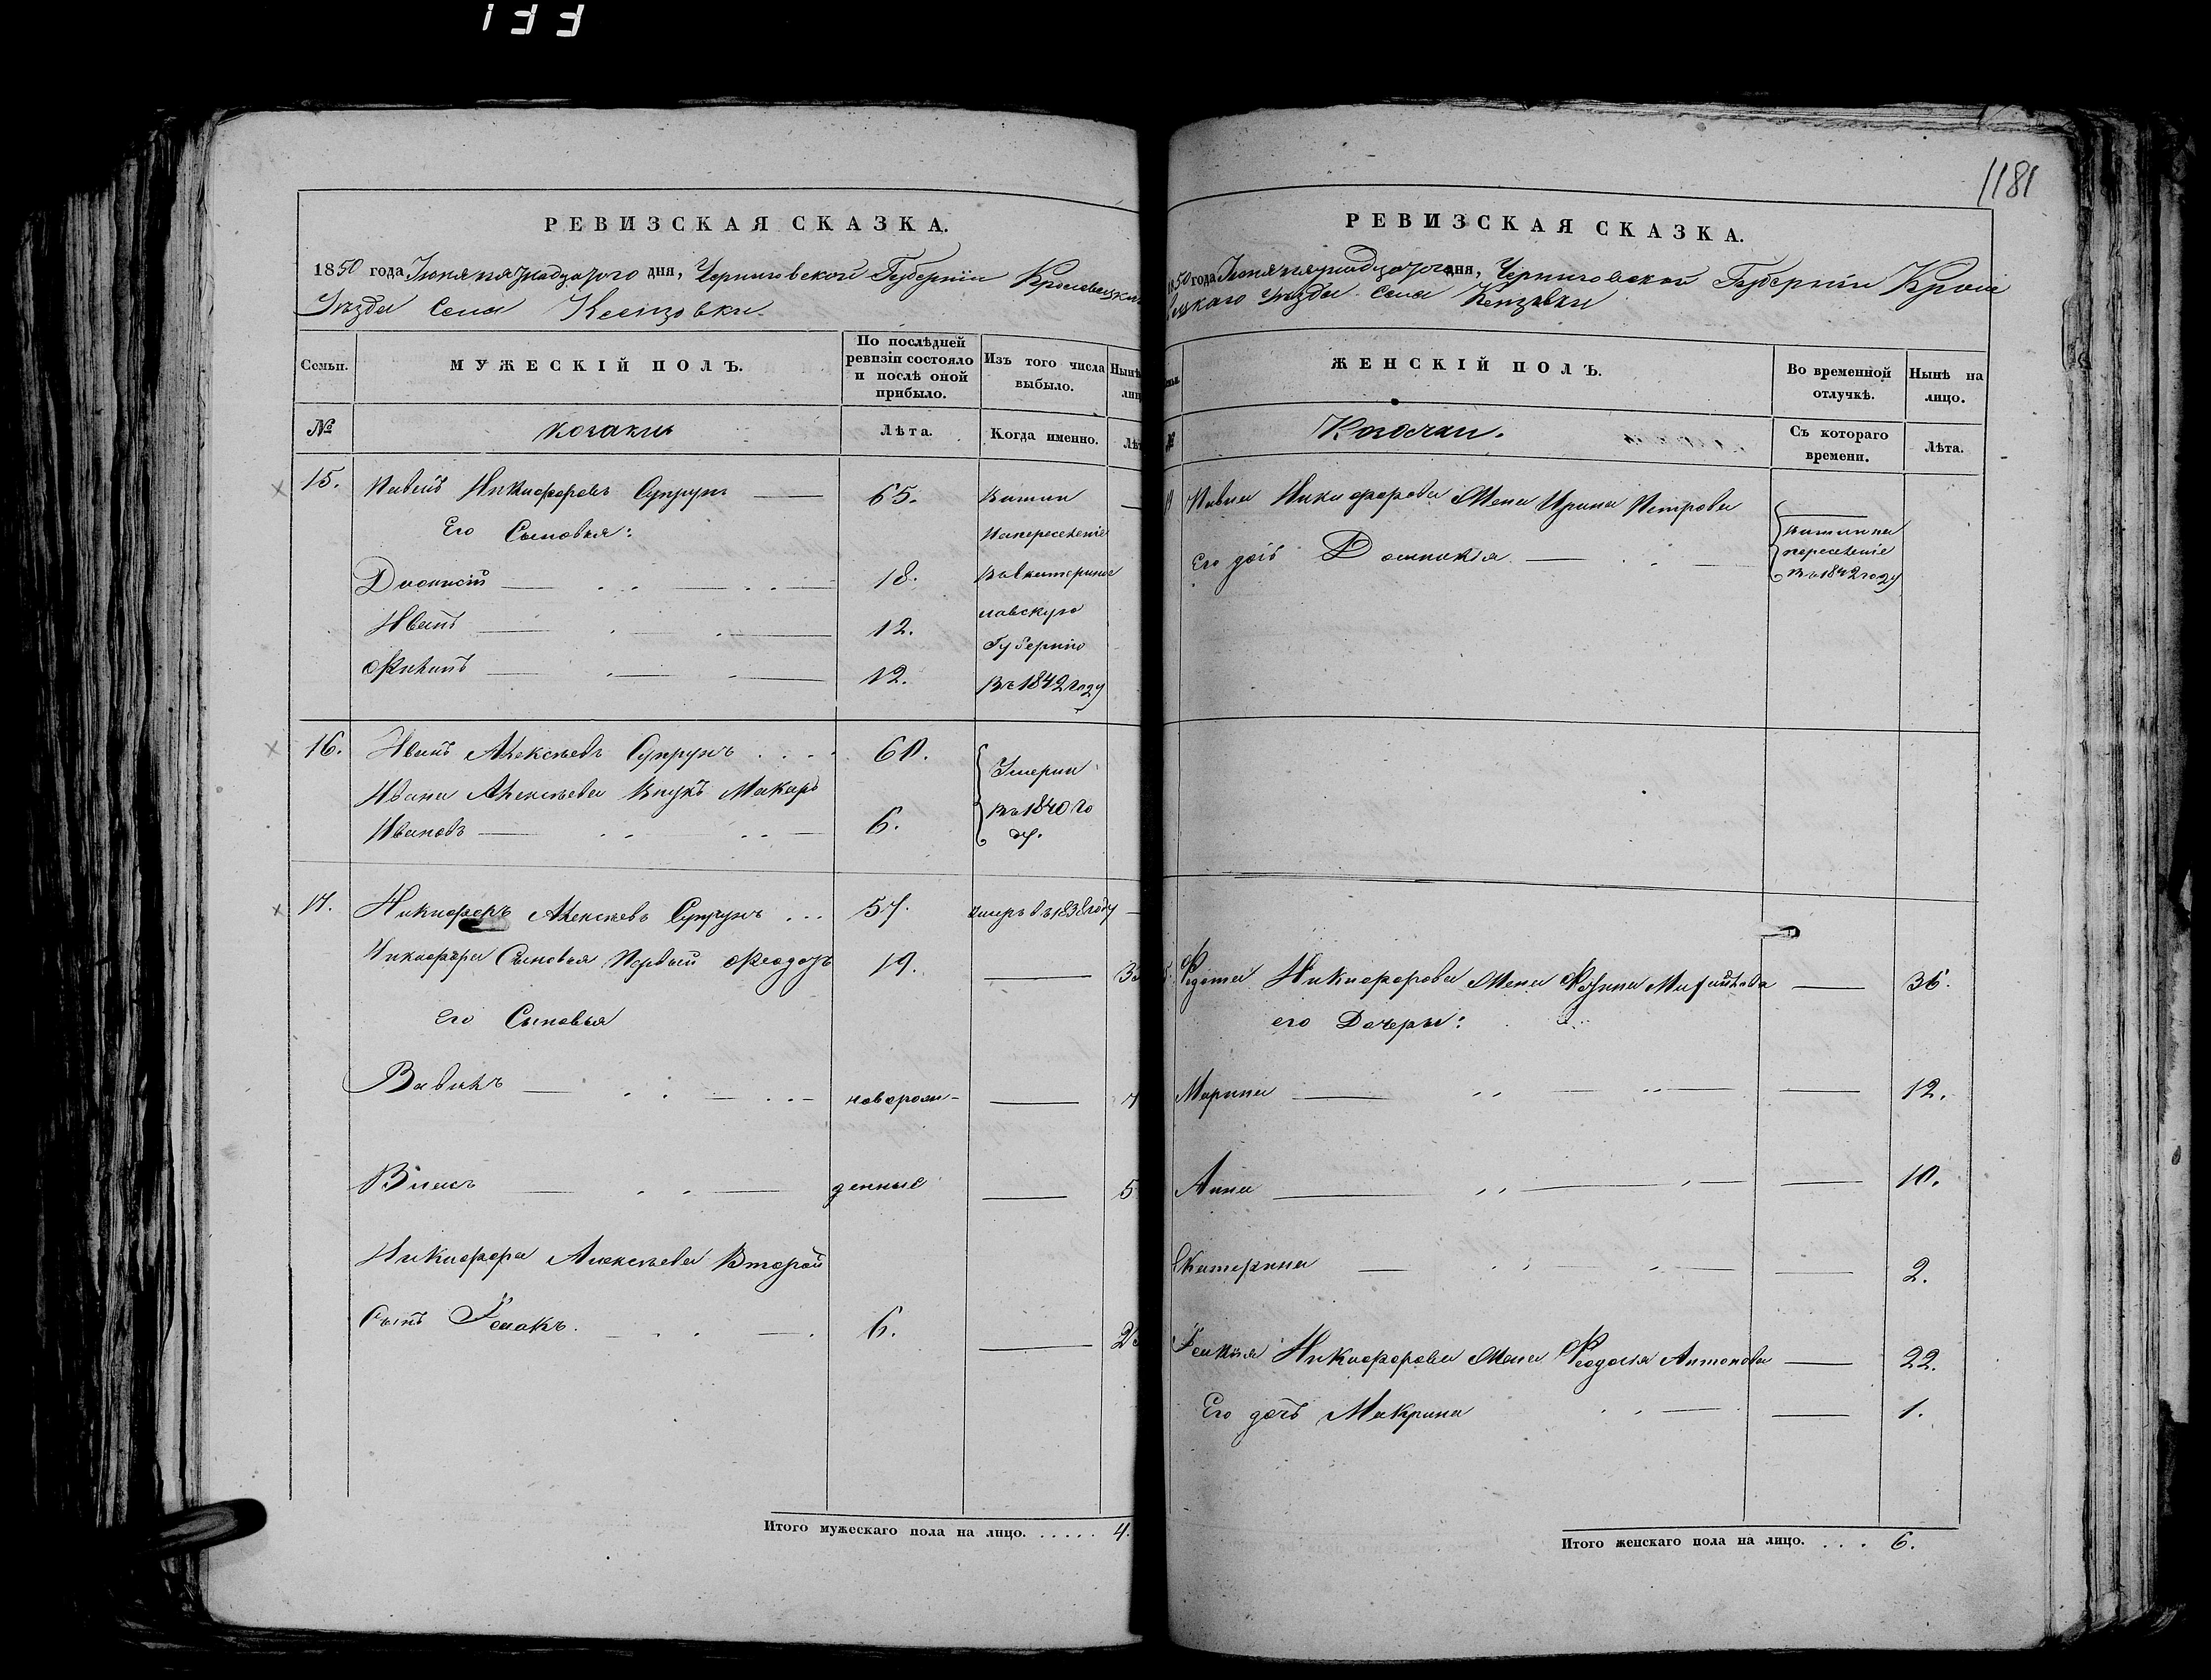 133
РЕВИЗСКАЯ СКАЗКА.
1850 года Іюня пятнадцатого дня, Черниговской Губерніи Кролевецкаго
Уѣзда Села
Семьи.
МУЖЕСКІЙ ПОЛЪ.
По послѣдней ревизіи состояло и послѣ оной прибыло.
Изъ того числа выбыло.
Нынѣ
№
Козаки
Лѣта.
Когда именно.
15. Павелъ Никифоровъ Супрунъ 65. Вышли
Его Сыновья: на переселеніе
Діонисій 18. въ Екатеринос
Иванъ 12. лавскую
Губернію
Филипъ 12. въ 1842 году
16. Иванъ Алексѣевъ Супрунъ 60. Умерли
Ивана Алексѣева Внукъ Макаръ въ 1840 го
Ивановъ 6. ду.
17. Никифоръ Алексѣевъ Супрунъ 57. умеръ въ 1838 году
Никифора Сыновья Первый 19.
Его Сыновья
Вавилъ новорож- 7
денные 5
Никифора Алексѣева Второй
Сынъ 6.
Итого мужескаго пола на лицо. . . . . . 4.
1181
РЕВИЗСКАЯ СКАЗКА.
1850 года Іюня пятнадцатого дня, Черниговской Губерніи Кроле
вецкаго Уѣзда Села
ЖЕНСКІЙ ПОЛЪ.
Во временной отлучкѣ.
Нынѣ на лицо.
№
Козачки.
Съ котораго времени.
Лѣта.
Павла Никифорова Жена Ирина Петрова
вышли на
Его дочь Домникія переселеніе
въ 1842 году
Никифорова Жена 36.
его Дочери:
Марина 12.
Анна 10.
Екатерина 2.
Никифорова Жена Феодосія Антонова 22.
Его дочь Макрина 1.
Итого женскаго пола на лицо. . . . 6.